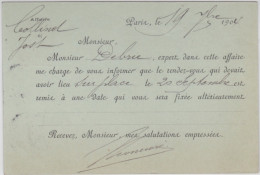 Affaire
Paris, le 19 7bre 190
Monsieur,
Monsieur Debrie, expert dans cette affaire
me charge de vous informer que le rendez-vous qui devait
avoir lieu sur place le 20 septembre est
remis à une date qui vous sera fixée ultérieurement.
Recevez, Monsieur mes salutations empressées.